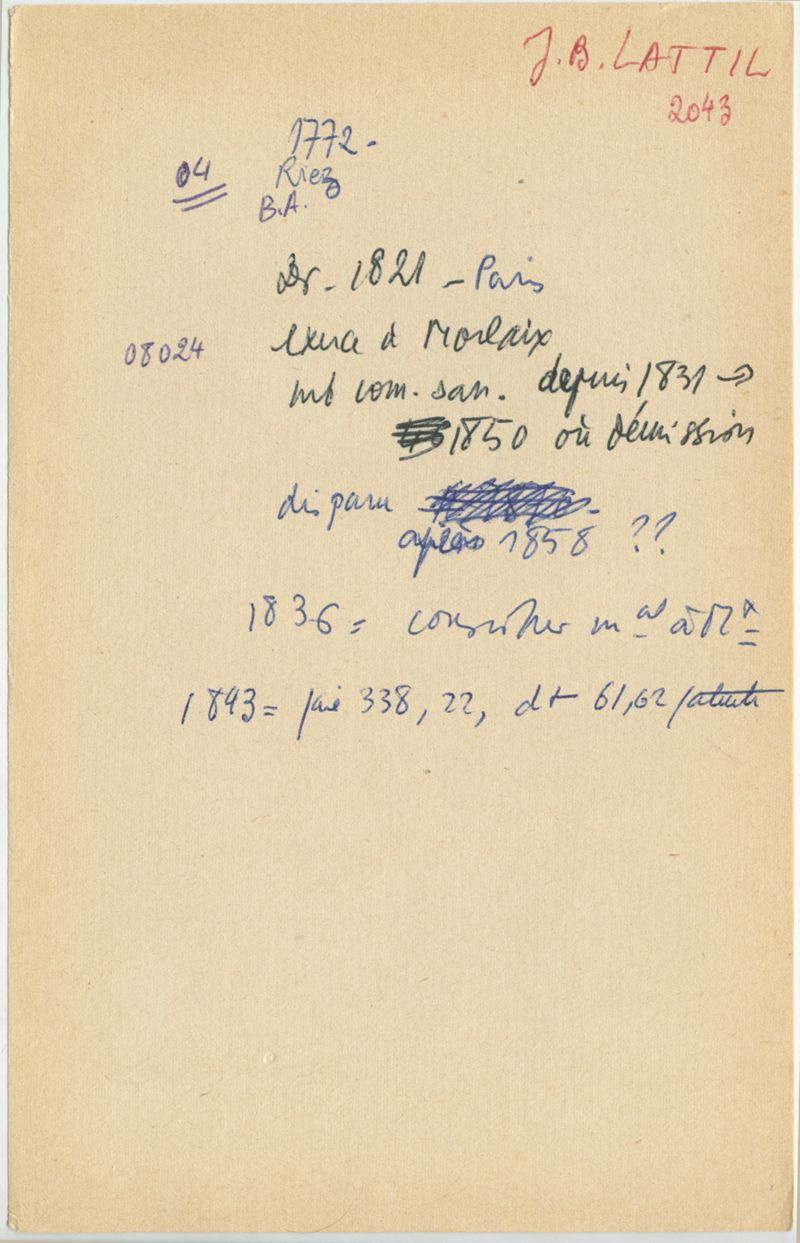 J.B. LATTIL
2043
1772-
04
Riez
B.A.
Dr - 1821 - Paris
08024
exerce à Morlaix
mb com. san. depuis 1831 →
1850 où démission
disparu
après 1858 ??
1836 = conseiller mal à Mx
1843 = paie 338,22, dt 61,62 patente